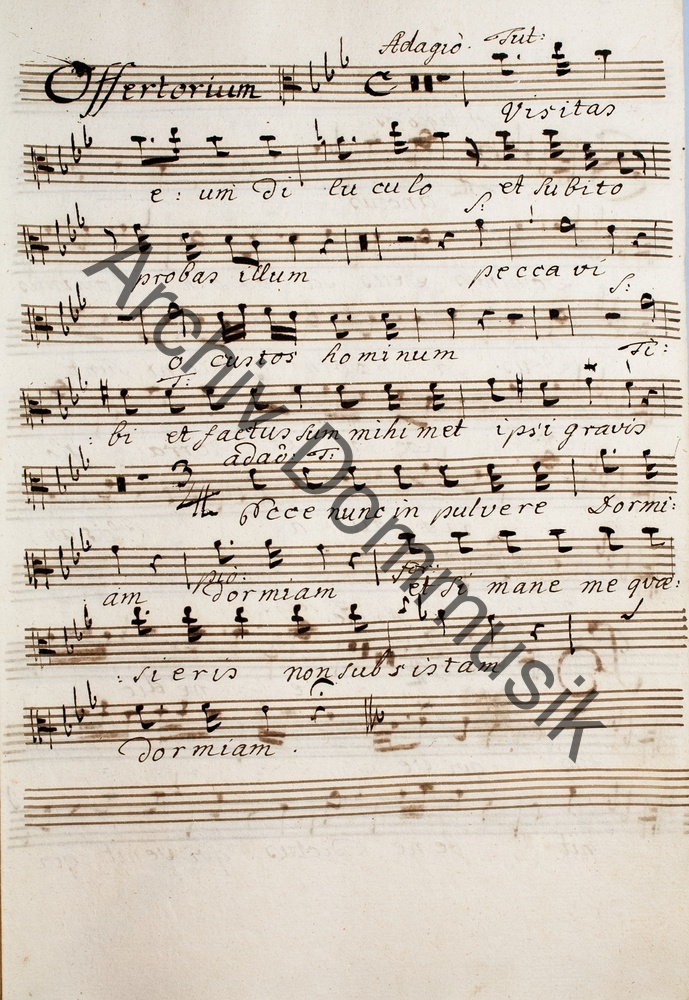 Adagiò. Tut:
Offertorium
Visitas
e: um di lu culo et subito
S:
probas illum pecca vi
S:
o custos hominum Ti:
T:
: bi et factus sum mihi met ipsi gravis
adaô T:
Ecce nunc in pulvere Dormi:
pio: for:
am dormiam et si mane me quæ:
: sieris non subsistam
dormiam .
Archiv Dommusik